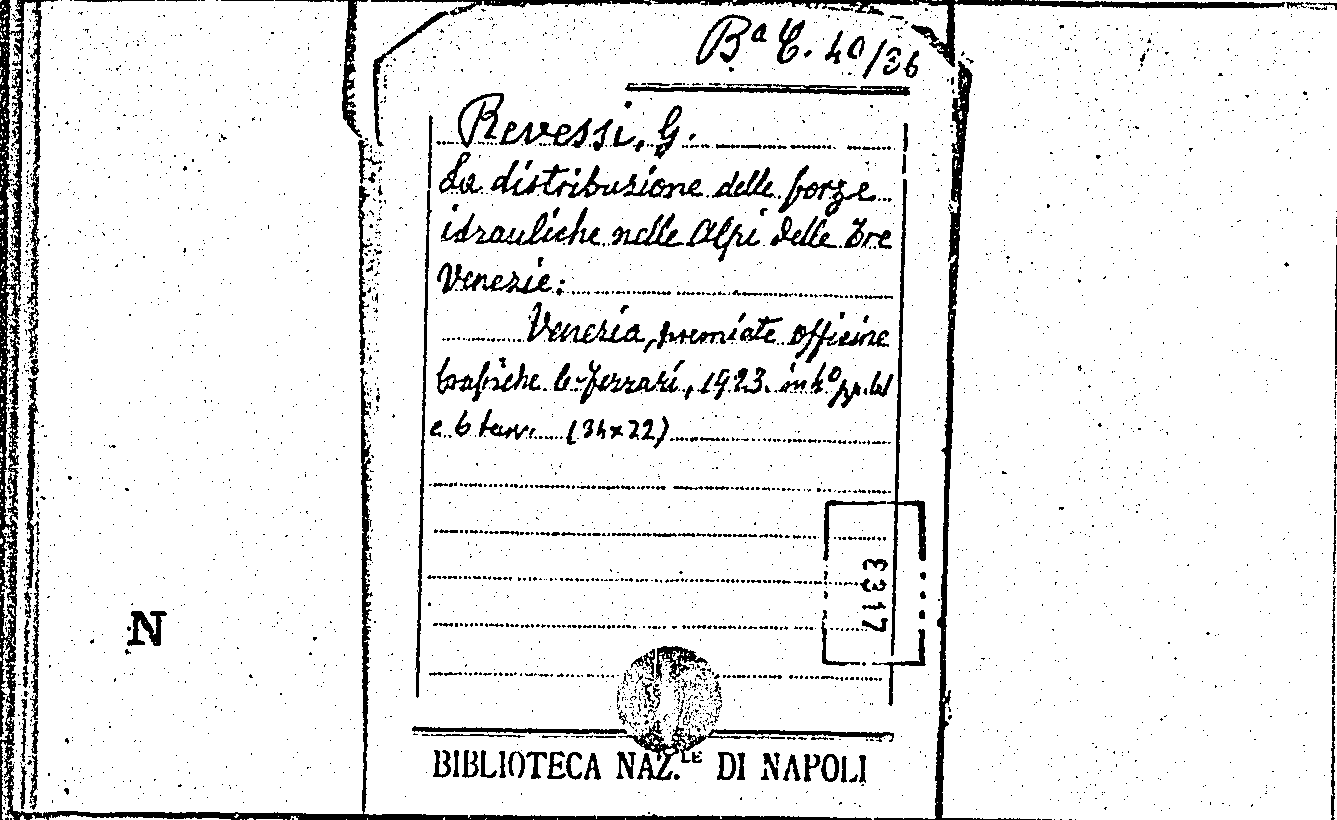 Bª C. 40/36
Revessi, G.
La distribuzione delle forze
idrauliche nelle Alpi delle Tre
Venezie:
Venezia, premiate officine
Grafiche C. Ferrari, 1923. in 4º pp.
e 6 tav. (34x22)
N
3317
BIBLIOTECA NAZ.LE DI NAPOLI